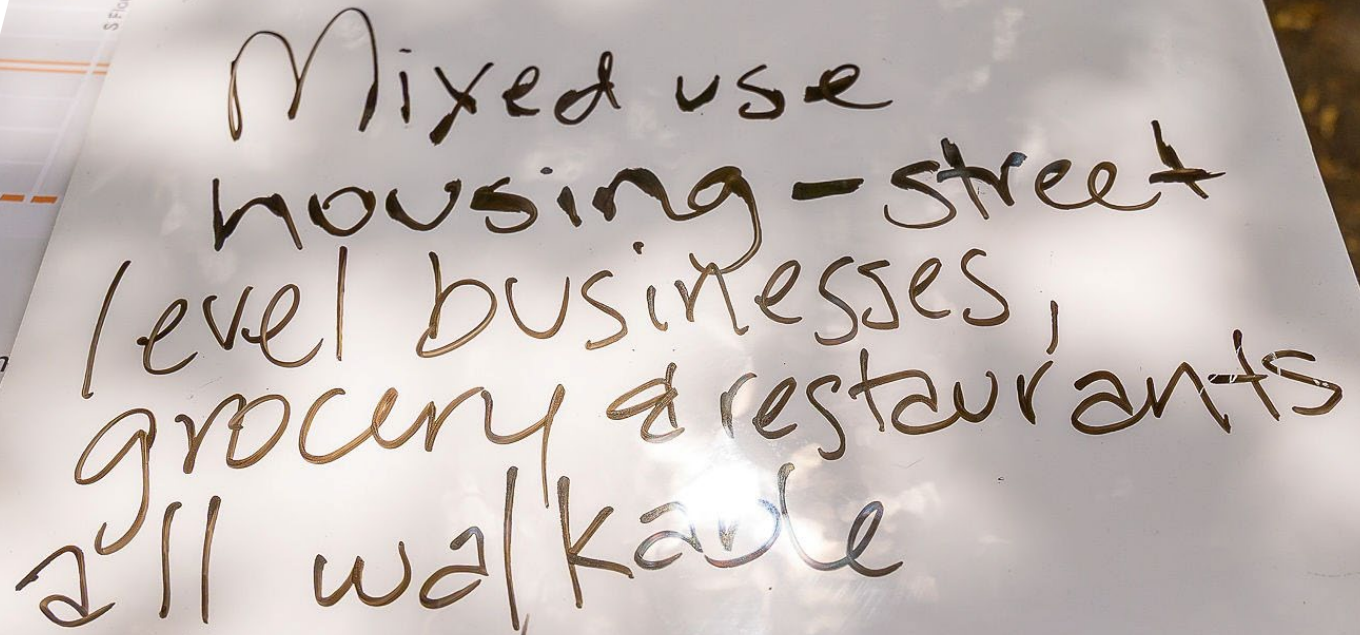 Mixed use
housing - street
level businesses,
grocery & restaurants
all walkable